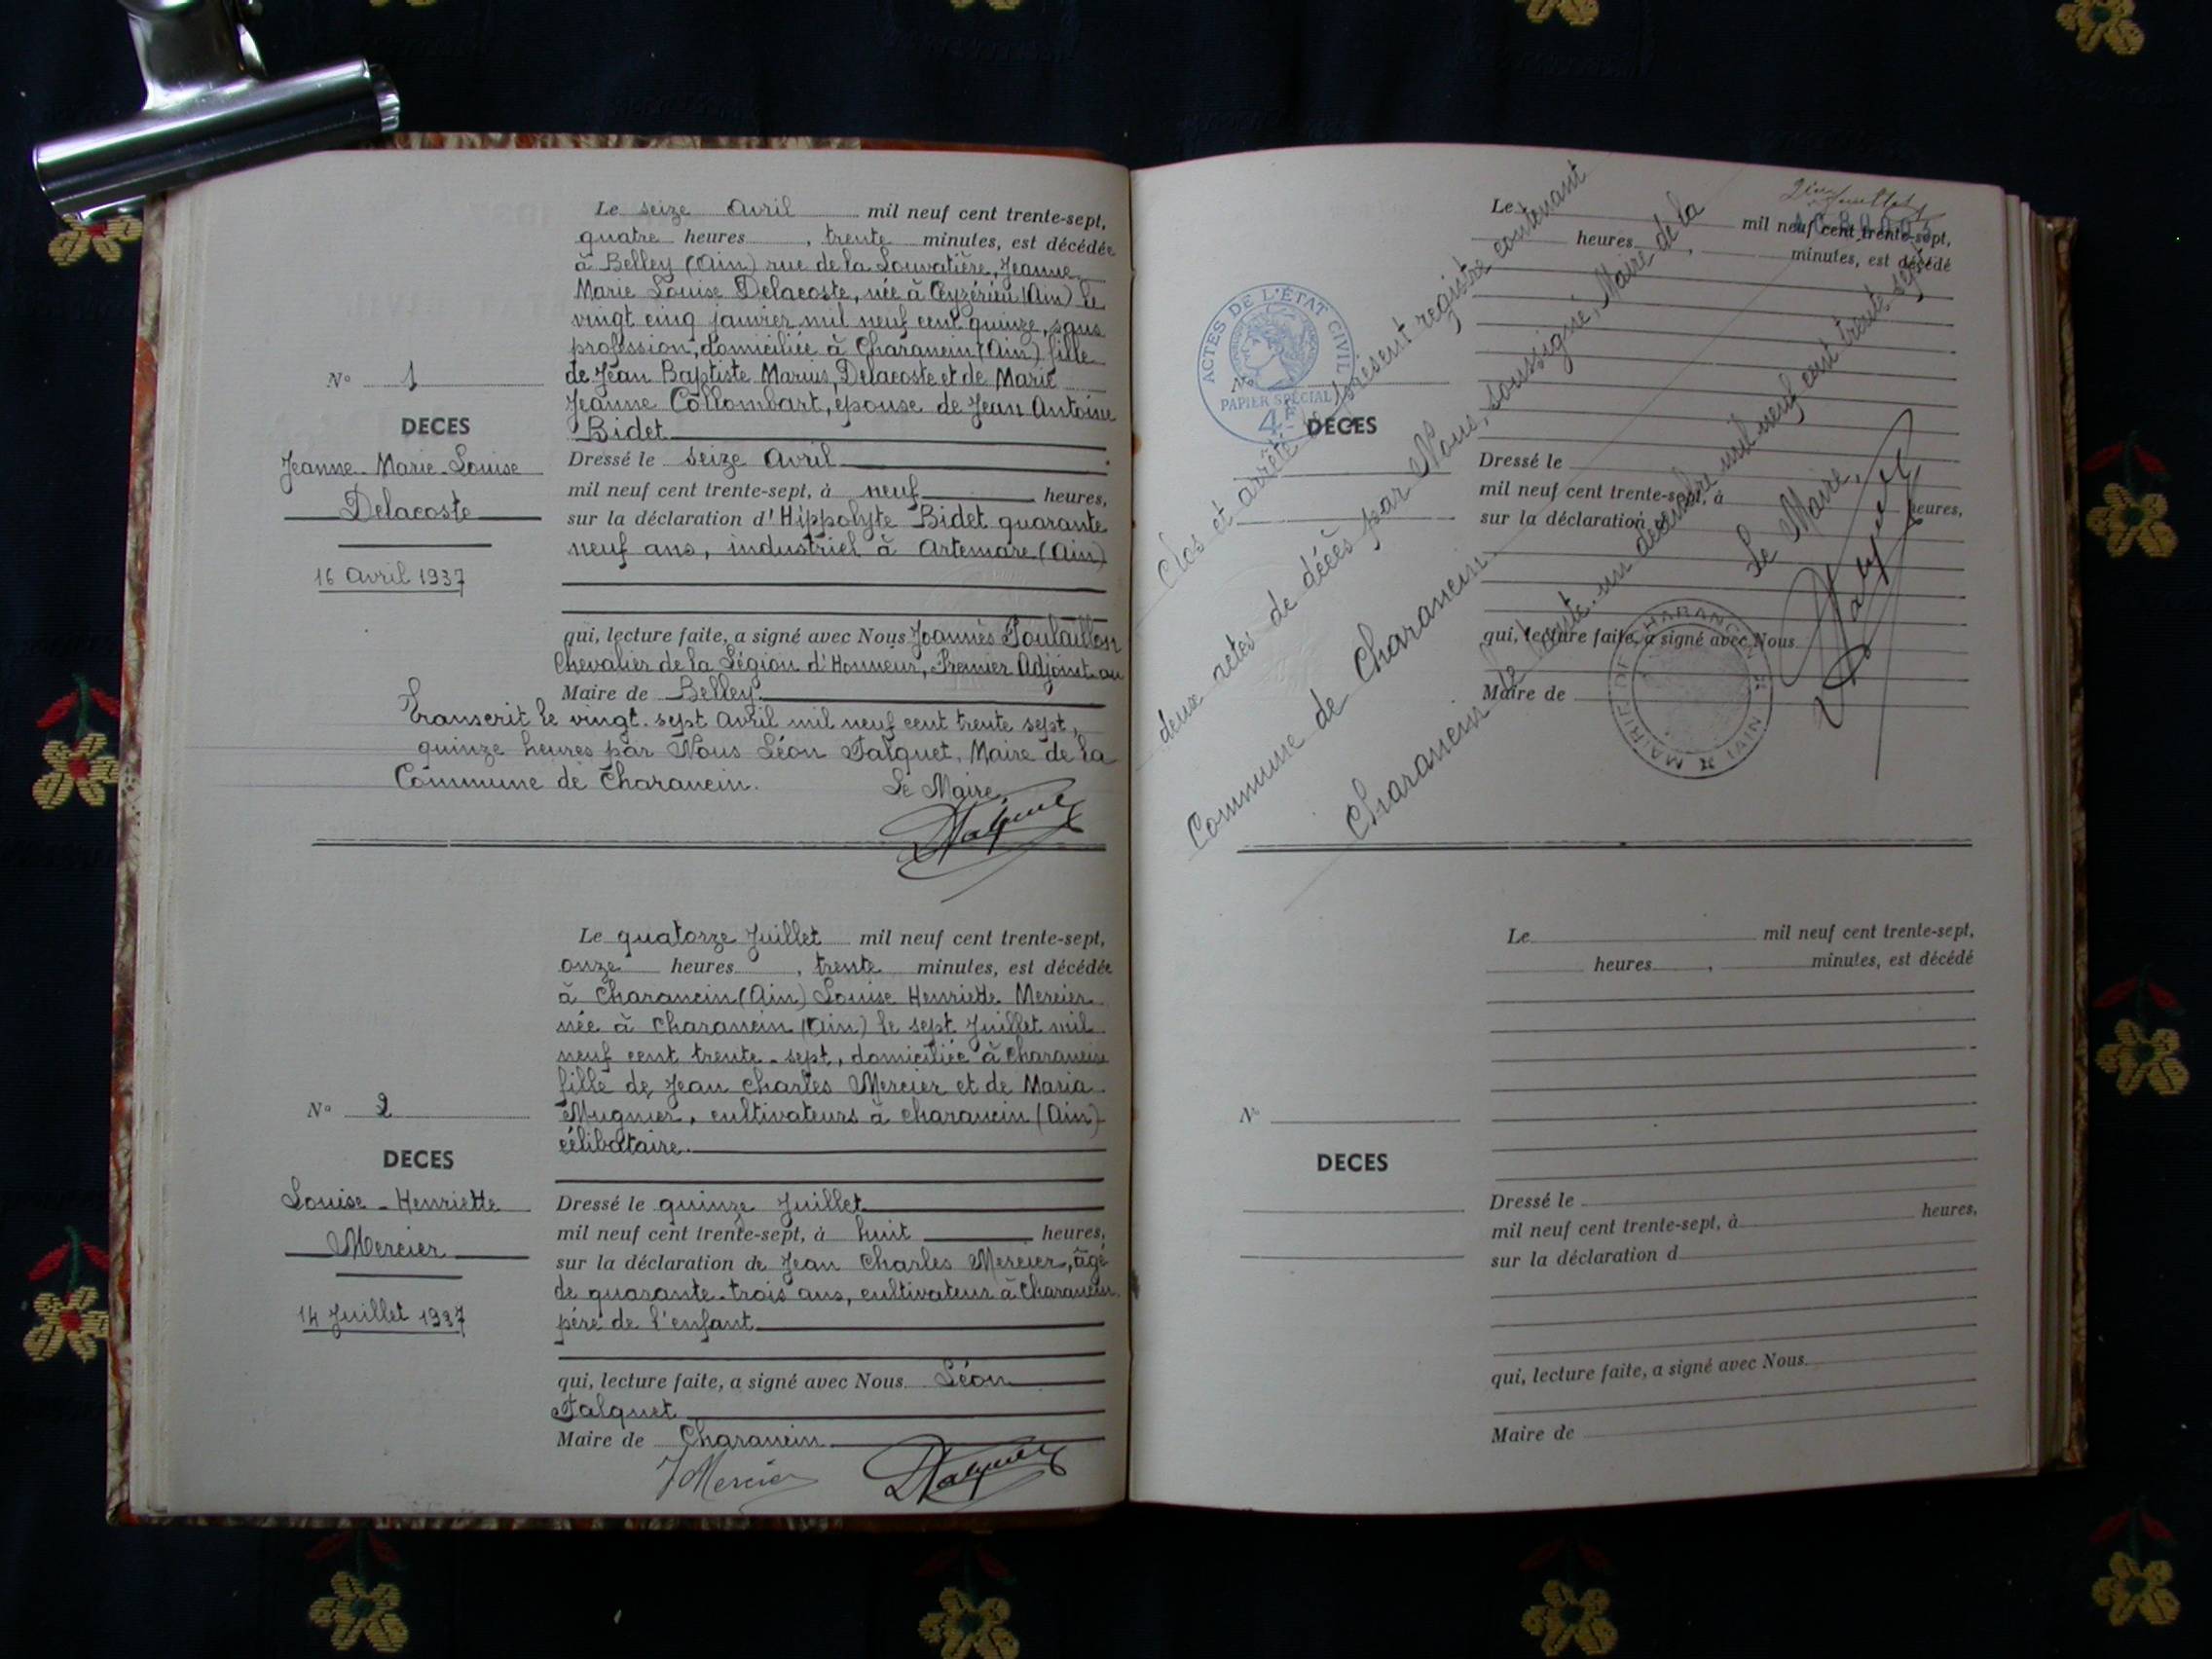 Le seize Avril mil neuf cent trente-sept,
quatre heures, trente minutes, est décédée
à Belley (Ain) rue de la Louvatière, Jeanne
Marie Louise Delacoste, née à Ceyzérieu (Ain) le
vingt cinq janvier mil neuf cent quinze, sans
profession, domiciliée à Charancin (Ain) fille
de Jean Baptiste Marius, Delacoste et de Marie
Jeanne Collombart, épouse de Jean Antoine
Bidet
N° 1
DECES
Jeanne-Marie-Louise
Delacoste
16 Avril 1937
Dressé le seize Avril
mil neuf cent trente-sept, à neuf heures,
sur la déclaration d'Hippolyte Bidet quarante
neuf ans, industriel à Artemare (Ain)
qui, lecture faite, a signé avec Nous Joannès Poulaillon
Chevalier de la Légion d'Honneur, Premier Adjoint au
Maire de Belley.
Transcrit le vingt-sept Avril mil neuf cent trente sept,
quinze heures par Nous Léon Falquet, Maire de la
Commune de Charancin. Le Maire,
Falquet
Le quatorze Juillet mil neuf cent trente-sept,
onze heures, trente minutes, est décédée
à Charancin (Ain) Louise Henriette Mercier
née à Charancin (Ain) le sept Juillet mil
neuf cent trente-sept, domiciliée à Charancin
fille de Jean Charles Mercier et de Maria
Mugnier, cultivateurs à Charancin (Ain)
célibataire.
N° 2
DECES
Louise-Henriette
Mercier
14 Juillet 1937
Dressé le quinze Juillet
mil neuf cent trente-sept, à huit heures,
sur la déclaration de Jean Charles Mercier, âgé
de quarante-trois ans, cultivateur à Charancin
père de l'enfant
qui, lecture faite, a signé avec Nous Léon
Falquet
Maire de Charancin
J Mercier Falquet
Le mil neuf cent trente-sept,
heures, minutes, est décédé
ACTES DE L'ÉTAT CIVIL
PAPIER SPÉCIAL
4F
N°
DECES
Dressé le
mil neuf cent trente-sept, à heures,
sur la déclaration d
qui, lecture faite, a signé avec Nous
Maire de
Clos et arrêté le présent registre contenant
deux actes de décès par Nous, soussigné, Maire de la
Commune de Charancin
Charancin le trente-un décembre mil neuf cent trente-sept
Le Maire,
Falquet
MAIRIE DE CHARANCIN (AIN)
Le mil neuf cent trente-sept,
heures, minutes, est décédé
N°
DECES
Dressé le
mil neuf cent trente-sept, à heures,
sur la déclaration d
qui, lecture faite, a signé avec Nous
Maire de